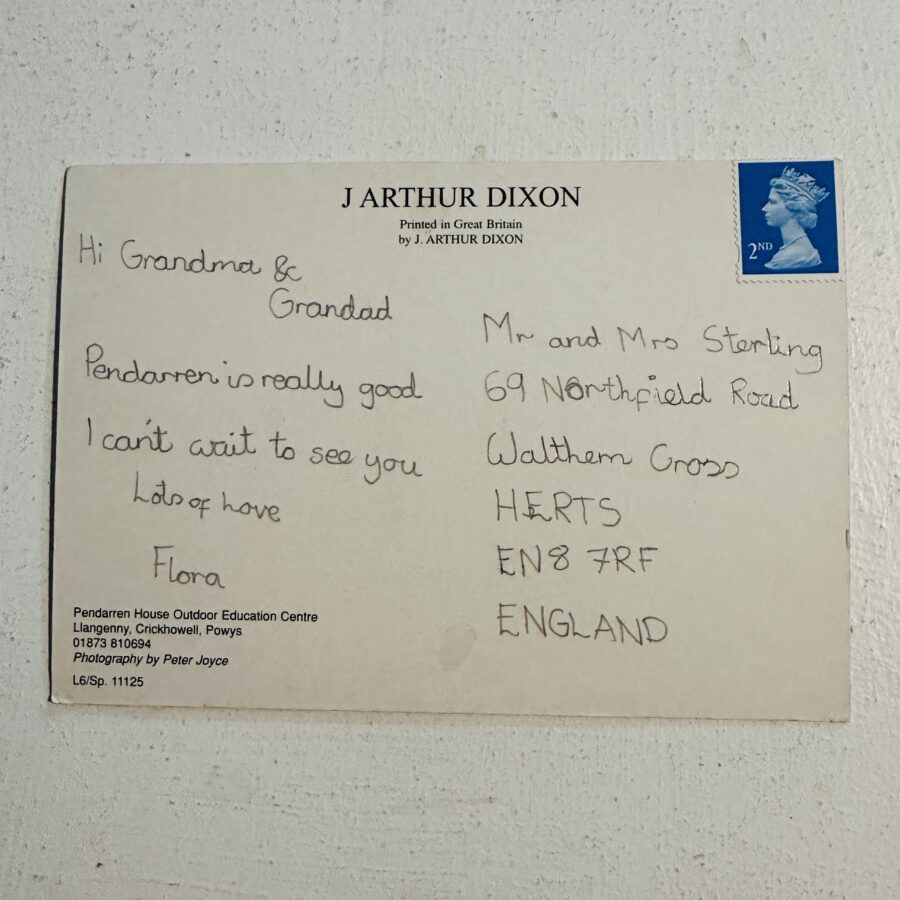 J ARTHUR DIXON
Printed in Great Britain
by J. ARTHUR DIXON
2ND
Hi Grandma &
Grandad
Pendarren is really good
I can't wait to see you
Lots of Love
Flora
Mr and Mrs Sterling
69 Northfield Road
Walthem Cross
HERTS
EN8 7RF
ENGLAND
Pendarren House Outdoor Education Centre
Llangenny, Crickhowell, Powys
01873 810694
Photography by Peter Joyce
L6/Sp. 11125